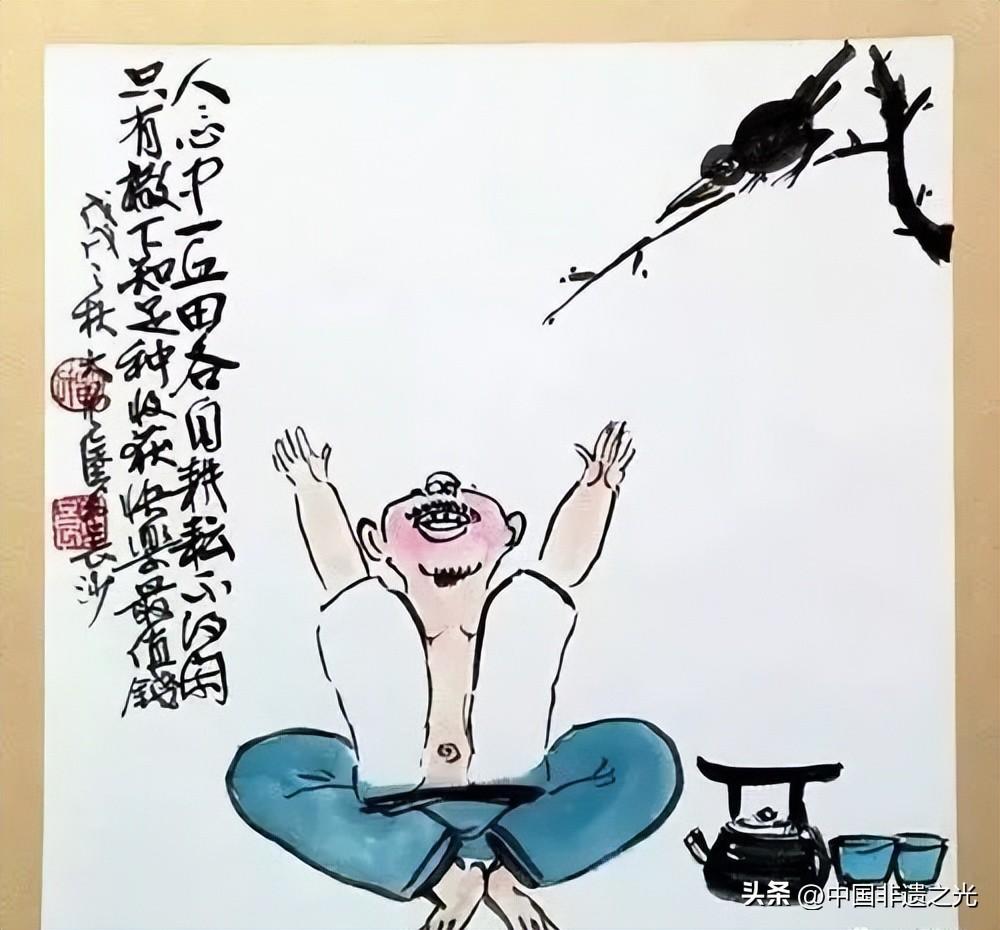 人心中一丘田各自耕耘不得闲
只有撒下知足种收获快樂最值錢
戊戌之秋大 長沙
头条 @中国非遗之光